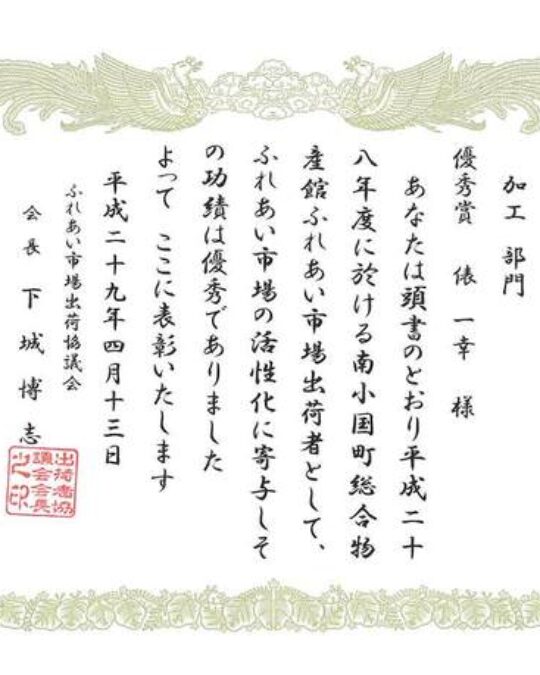 加工 部門
優秀賞 俵 一幸 様
あなたは頭書のとおり平成二十
八年度に於ける南小国町総合物
産館ふれあい市場出荷者として、
ふれあい市場の活性化に寄与しそ
の功績は優秀でありました
よって ここに表彰いたします
平成二十九年四月十三日
ふれあい市場出荷協議会
会長 下城 博志
出荷者協
議会会長
之印